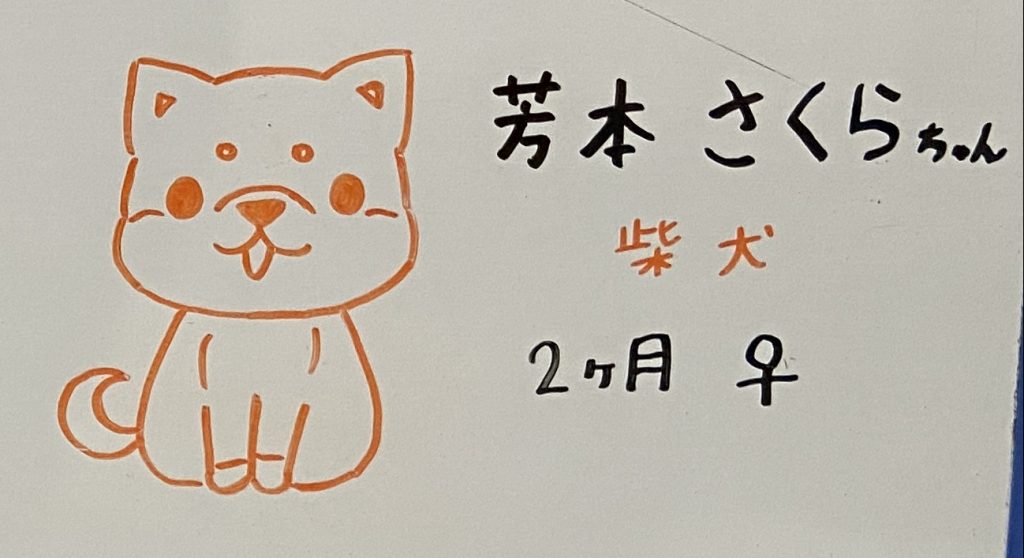 芳本 さくらちゃん
柴犬
2ヶ月 ♀